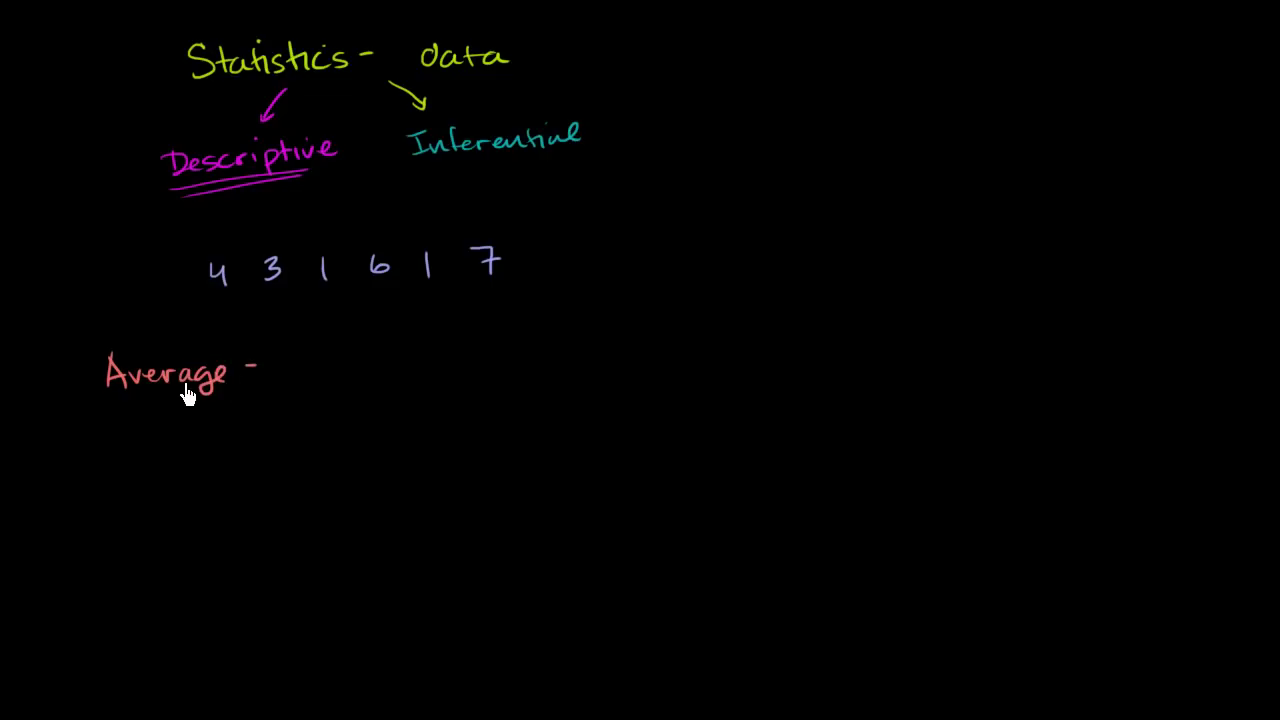 Statistics - data
Descriptive Inferential
4 3 1 6 1 7
Average -